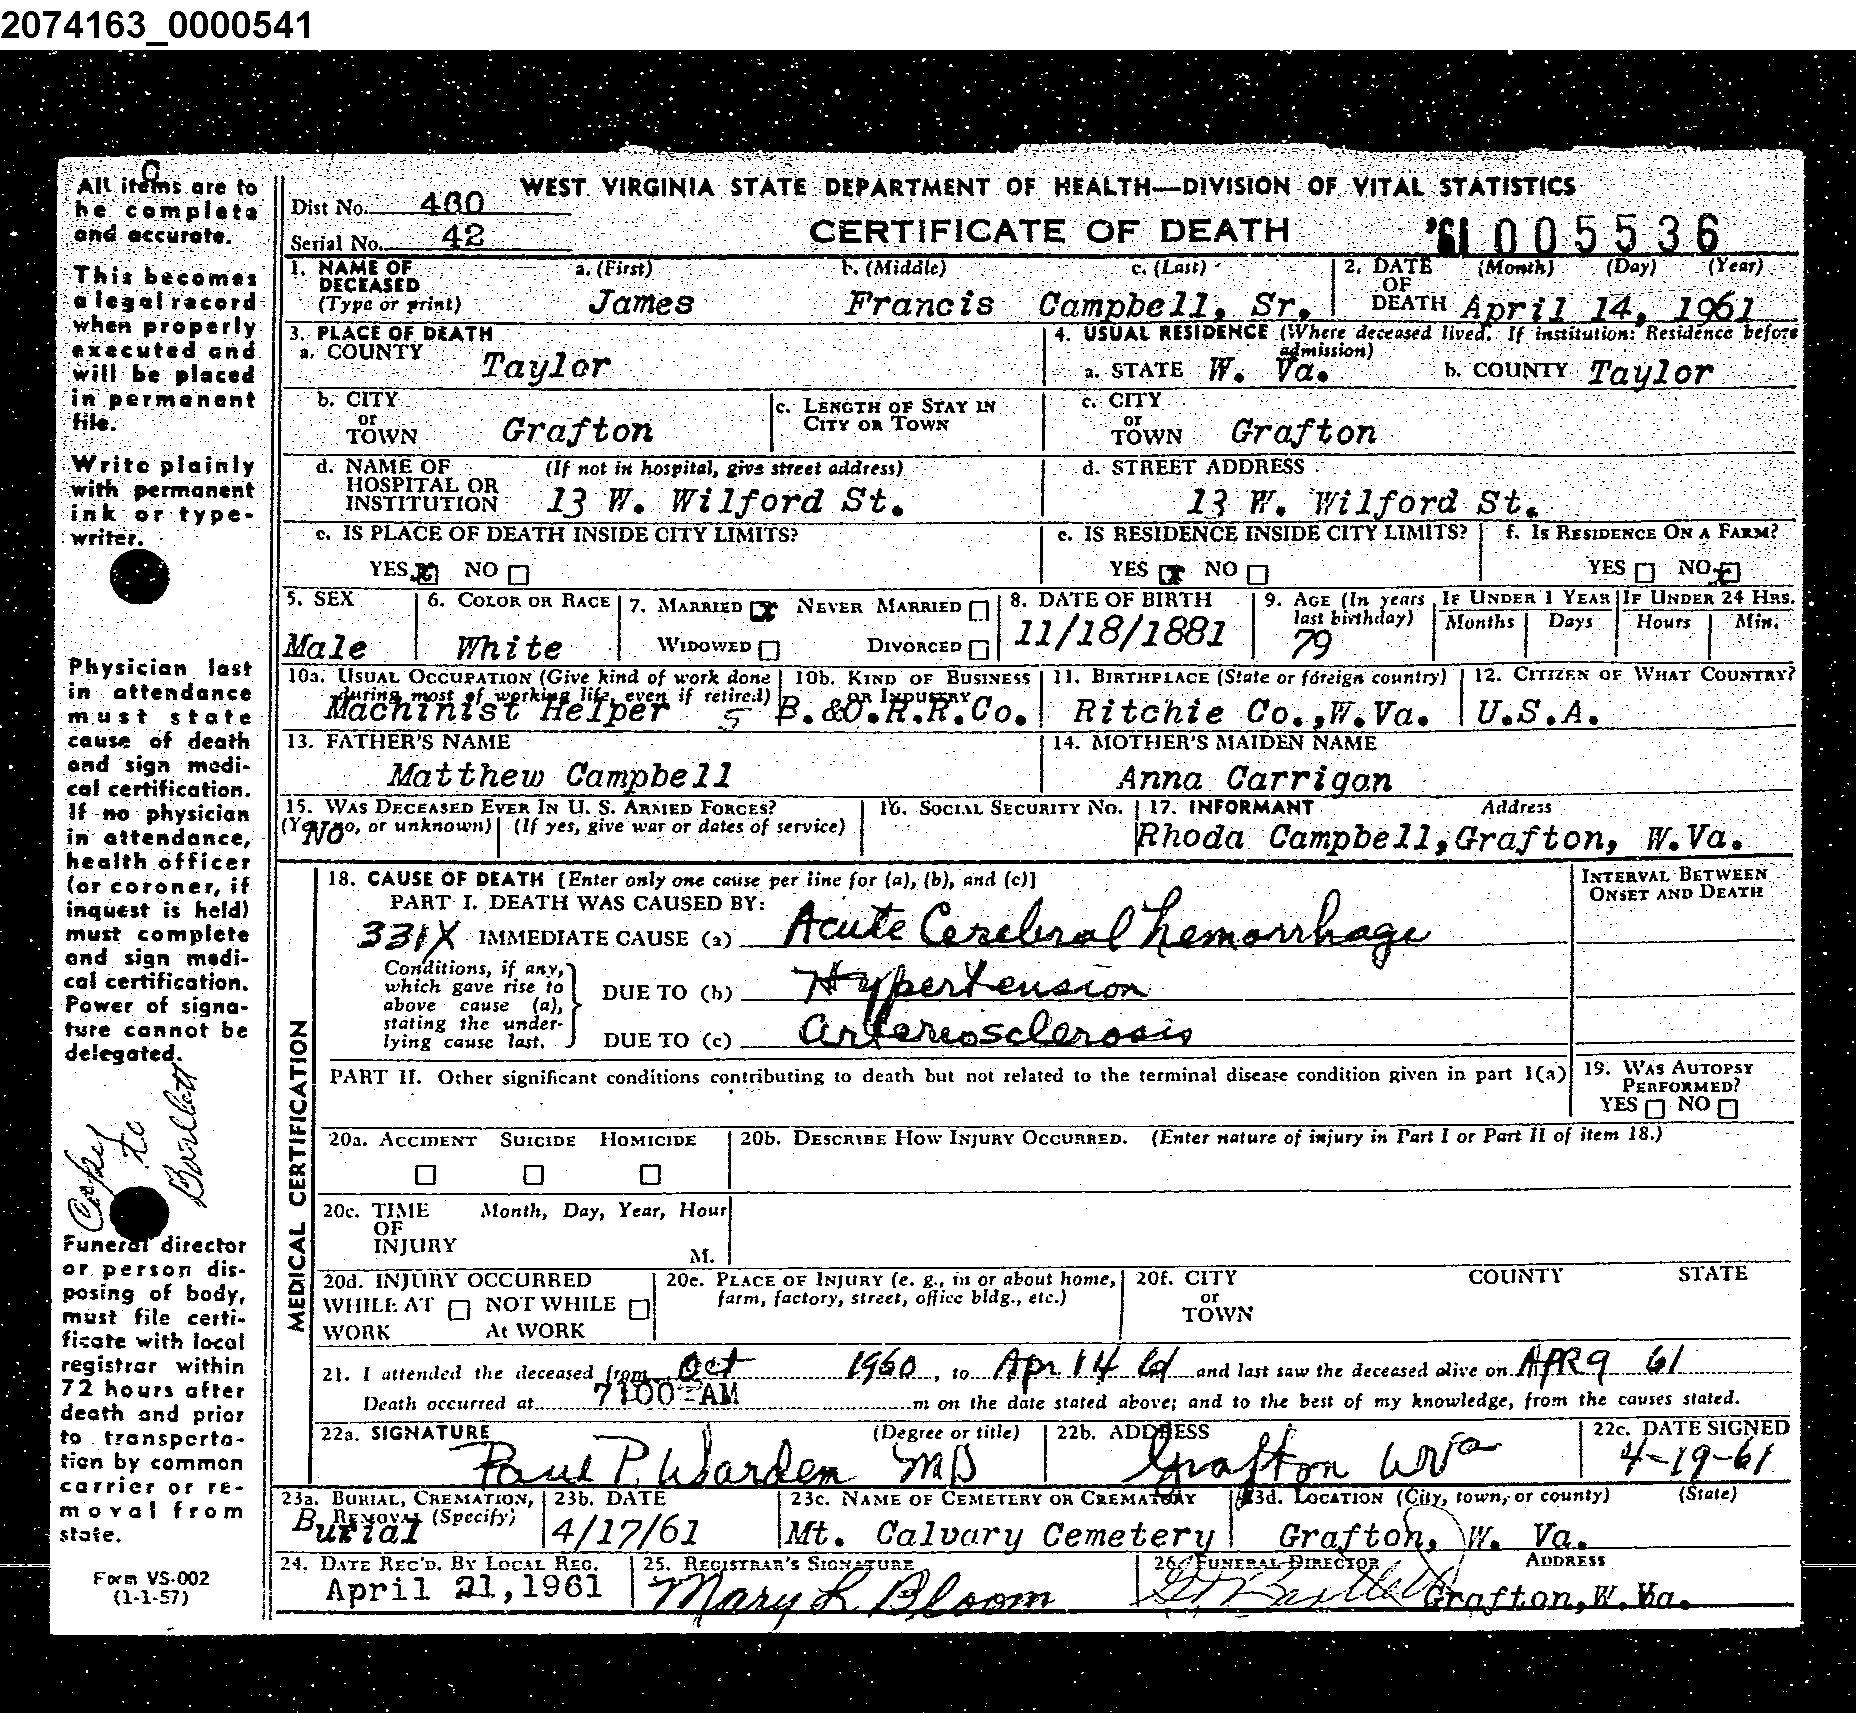 2074163_0000541
All items are to
be complete
and accurate.
This becomes
a legal record
when properly
executed and
will be placed
in permanent
file.
Write plainly
with permanent
ink or type-
writer.
Physician last
in attendance
must state
cause of death
and sign medi-
cal certification.
If no physician
in attendance,
health officer
(or coroner, if
inquest is held)
must complete
and sign medi-
cal certification.
Power of signa-
ture cannot be
delegated.
Copy to Bartlett
Funeral director
or person dis-
posing of body,
must file certi-
ficate with local
registrar within
72 hours after
death and prior
to transporta-
tion by common
carrier or re-
moval from
state.
Form VS-002
(1-1-57)
WEST VIRGINIA STATE DEPARTMENT OF HEALTH—DIVISION OF VITAL STATISTICS
Dist No. 460
Serial No. 42
CERTIFICATE OF DEATH
'61 005536
1. NAME OF DECEASED (Type or print) a. (First) b. (Middle) c. (Last)
James Francis Campbell, Sr.
2. DATE OF DEATH (Month) (Day) (Year)
April 14, 1961
3. PLACE OF DEATH
a. COUNTY Taylor
4. USUAL RESIDENCE (Where deceased lived. If institution: Residence before admission)
a. STATE W. Va. b. COUNTY Taylor
b. CITY or TOWN Grafton
c. LENGTH OF STAY IN CITY OR TOWN
c. CITY or TOWN Grafton
d. NAME OF HOSPITAL OR INSTITUTION (If not in hospital, give street address)
13 W. Wilford St.
d. STREET ADDRESS
13 W. Wilford St.
e. IS PLACE OF DEATH INSIDE CITY LIMITS?
YES X NO
e. IS RESIDENCE INSIDE CITY LIMITS?
YES X NO
f. IS RESIDENCE ON A FARM?
YES NO X
5. SEX
Male
6. COLOR OR RACE
White
7. MARRIED X NEVER MARRIED
WIDOWED DIVORCED
8. DATE OF BIRTH
11/18/1881
9. AGE (In years last birthday)
79
IF UNDER 1 YEAR
Months Days
IF UNDER 24 HRS.
Hours Min.
10a. USUAL OCCUPATION (Give kind of work done during most of working life, even if retired)
Machinist Helper 5
10b. KIND OF BUSINESS OR INDUSTRY
B.&O.R.R.Co.
11. BIRTHPLACE (State or foreign country)
Ritchie Co.,W.Va.
12. CITIZEN OF WHAT COUNTRY?
U.S.A.
13. FATHER'S NAME
Matthew Campbell
14. MOTHER'S MAIDEN NAME
Anna Carrigan
15. WAS DECEASED EVER IN U. S. ARMED FORCES?
(Yes, no, or unknown) (If yes, give war or dates of service)
No
16. SOCIAL SECURITY No.
17. INFORMANT Address
Rhoda Campbell,Grafton, W.Va.
MEDICAL CERTIFICATION
18. CAUSE OF DEATH [Enter only one cause per line for (a), (b), and (c)]
INTERVAL BETWEEN ONSET AND DEATH
PART I. DEATH WAS CAUSED BY:
331X IMMEDIATE CAUSE (a) Acute Cerebral hemorrhage
Conditions, if any, which gave rise to above cause (a), stating the under-lying cause last.
DUE TO (b) Hypertension
DUE TO (c) arteriosclerosis
PART II. Other significant conditions contributing to death but not related to the terminal disease condition given in part 1(a)
19. WAS AUTOPSY PERFORMED?
YES NO
20a. ACCIDENT SUICIDE HOMICIDE
20b. DESCRIBE HOW INJURY OCCURRED. (Enter nature of injury in Part I or Part II of item 18.)
20c. TIME OF INJURY Month, Day, Year, Hour
M.
20d. INJURY OCCURRED
WHILE AT WORK NOT WHILE At WORK
20e. PLACE OF INJURY (e. g., in or about home, farm, factory, street, office bldg., etc.)
20f. CITY or TOWN COUNTY STATE
21. I attended the deceased from Oct 1960, to Apr 14 61 and last saw the deceased alive on APR 9 61
Death occurred at 7:00 AM m on the date stated above; and to the best of my knowledge, from the causes stated.
22a. SIGNATURE (Degree or title)
Paul P. Warden MD
22b. ADDRESS
Grafton WVa
22c. DATE SIGNED
4-19-61
23a. BURIAL, CREMATION, REMOVAL (Specify)
Burial
23b. DATE
4/17/61
23c. NAME OF CEMETERY OR CREMATORY
Mt. Calvary Cemetery
23d. LOCATION (City, town, or county) (State)
Grafton, W. Va.
24. DATE REC'D. BY LOCAL REG.
April 21,1961
25. REGISTRAR'S SIGNATURE
Mary L Bloom
26. FUNERAL DIRECTOR ADDRESS
Bartlett Grafton,W.Va.